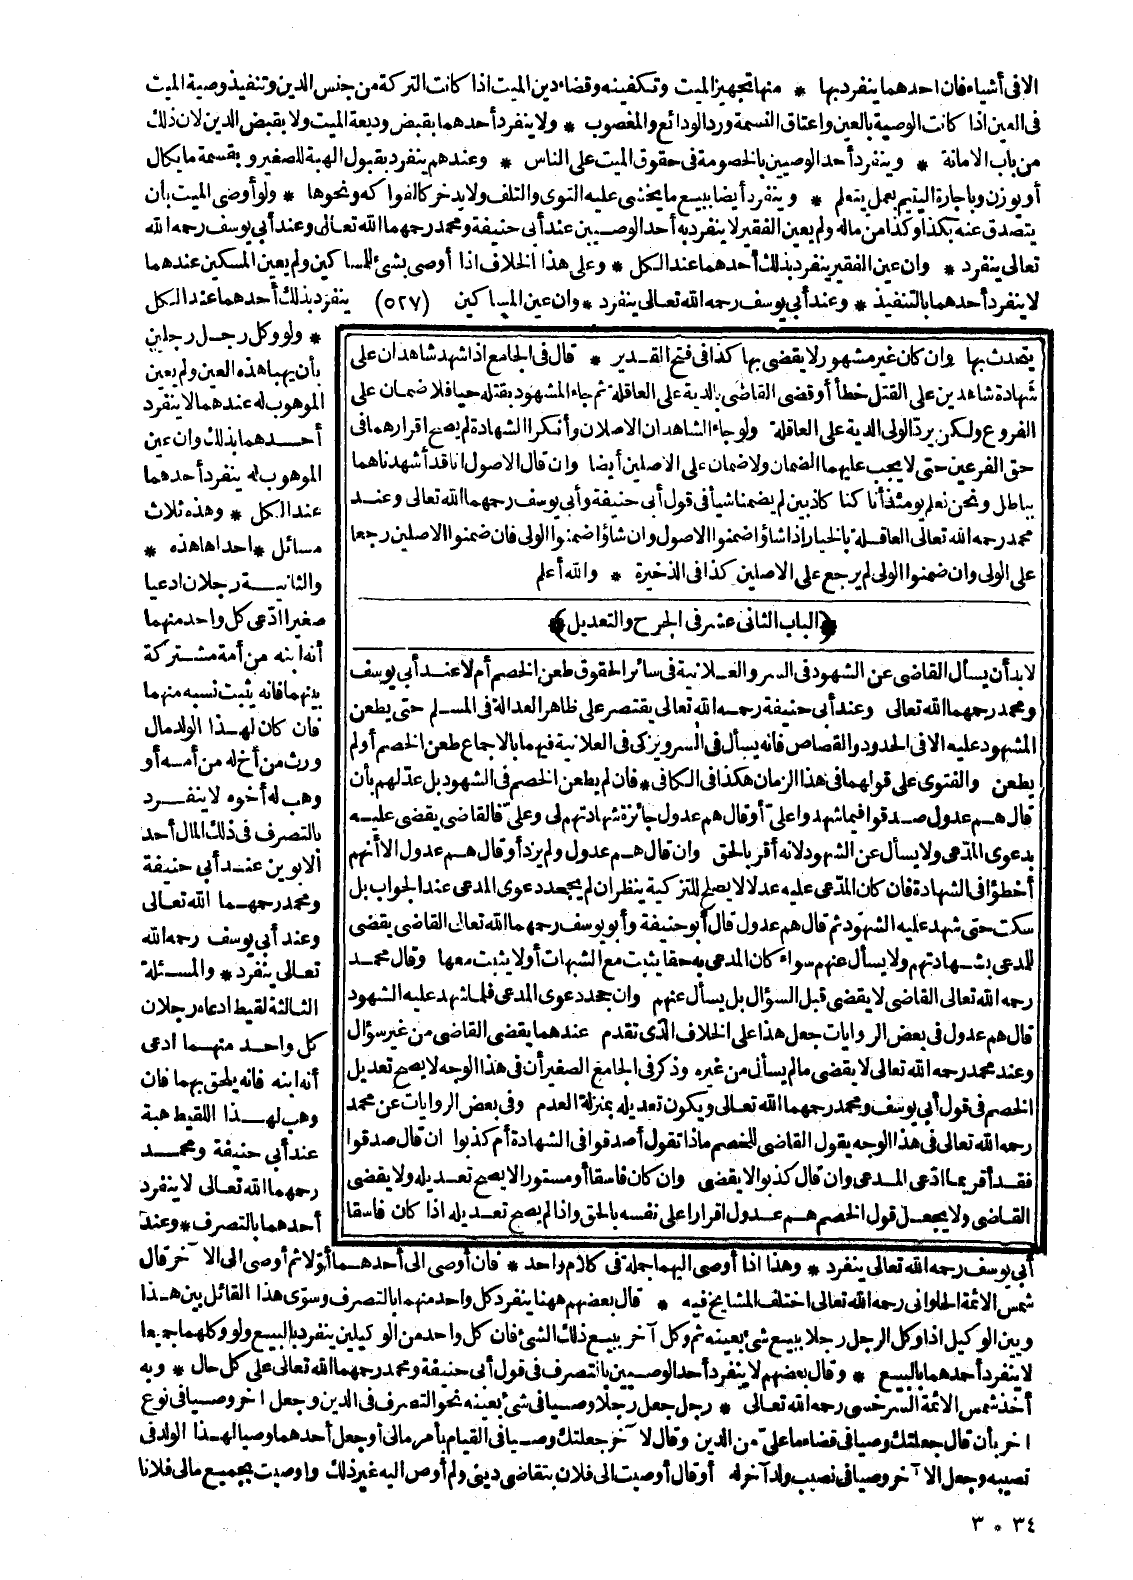 الا فى أشياء فان احدهما ينفرد بها * منها تجهيز الميت وتكفينه وقضاء دين الميت اذا كانت التركة من جنس الدين وتنفيذ وصية الميت
فى العين اذا كانت الوصية بالعين واعتاق النسمة ورد الودائع والمغصوب * ولا ينفرد أحدهما بقبض وديعة الميت ولا بقبض الدين لان ذلك
من باب الامانة * وينفرد أحد الوصيين بالخصومة فى حقوق الميت على الناس * وعندهم ينفرد بقبول الهبة للصغير وبقسمة ما يكال
أو يوزن وباجارة اليتيم بعمل يتعلم * وينفرد أيضا ببيع ما يخشى عليه التوى والتلف ولا يدخر كالفواكه ونحوها * ولو أوصى الميت بأن
يتصدق عنه بكذا وكذا من ماله ولم يعين الفقير لا ينفرد به أحد الوصيين عند أبى حنيفة ومحمد رحمهما الله تعالى وعند أبى يوسف رحمه الله
تعالى ينفرد * وان عين الفقير ينفرد بذلك أحدهما عند الكل * وعلى هذا الخلاف اذا أوصى بشئ للمساكين ولم يعين المسكين عندهما
لا ينفرد أحدهما بالتنفيذ * وعند أبى يوسف رحمه الله تعالى ينفرد * وان عين المساكين (٥٢٧) ينفرد بذلك أحدهما عند الكل
* ولو وكل رجل رجلين
بأن يهبا هذه العين ولم يعين
الموهوب له عندهما لا ينفرد
أحدهما بذلك وان عين
الموهوب له ينفرد أحدهما
عند الكل * وهذه ثلاث
مسائل * احداها هذه *
والثانية رجلان ادعيا
صغيرا ادّعى كل واحد منهما
أنه ابنه من أمة مشتركة
بينهما فانه يثبت نسبه منهما
فان كان لهذا الولد مال
ورث من أخ له من أمه أو
وهب له أخوه لا ينفرد
بالتصرف فى ذلك المال أحد
الابوين عند أبى حنيفة
ومحمد رحمهما الله تعالى
وعند أبى يوسف رحمه الله
تعالى ينفرد * والمسئلة
الثالثة لقيط ادعاه رجلان
كل واحد منهما ادعى
أنه ابنه فانه يلحق بهما فان
وهب لهذا اللقيط هبة
عند أبى حنيفة ومحمد
رحمهما الله تعالى لا ينفرد
أحدهما بالتصرف * وعند
يقصدث بها وان كان غير مشهور لا يقضى بها كذا فى فتح القدير * قال فى الجامع اذا شهد شاهدان على
شهادة شاهدين على القتل خطأ وقضى القاضى بالدية على العاقلة ثم جاء المشهود بقتله حيا فلا ضمان على
الفروع ولكن يردّ الولى الدية على العاقلة ولو جاء الشاهدان الاصلان وأنكرا الشهادة لم يصح اقرارهما فى
حق الفرعين حتى لا يجب عليهما الضمان ولا ضمان على الاصلين أيضا وان قال الاصول انا قد أشهدناهما
بباطل ونحن نعلم يومئذ أنا كنا كاذبين لم يضمنا شيأ فى قول أبى حنيفة وأبى يوسف رحمهما الله تعالى وعند
محمد رحمه الله تعالى العاقلة بالخيار اذا شاؤا ضمنوا الاصول وان شاؤا ضمنوا الولى فان ضمنوا الاصلين رجعا
على الولى وان ضمنوا الولى لم يرجع على الاصلين كذا فى الذخيرة * والله أعلم
﴿الباب الثانى عشر فى الجرح والتعديل﴾
لا بد أن يسأل القاضى عن الشهود فى السر والعلانية فى سائر الحقوق طعن الخصم أم لا عند أبى يوسف
ومحمد رحمهما الله تعالى وعند أبى حنيفة رحمه الله تعالى يقتصر على ظاهر العدالة فى المسلم حتى يطعن
المشهود عليه الا فى الحدود والقصاص فانه يسأل فى السر ويزكى فى العلانية فيهما بالاجماع طعن الخصم أو لم
يطعن والفتوى على قولهما فى هذا الزمان هكذا فى الكافى * فان لم يطعن الخصم فى الشهود بل عدّلهم بأن
قال هم عدول صدقوا فيما شهدوا علىّ أو قال هم عدول جائزة شهادتهم لى وعلىّ فالقاضى يقضى عليه
بدعوى المدّعى ولا يسأل عن الشهود لانه أقر بالحق وان قال هم عدول ولم يزد أو قال هم عدول الا أنهم
أخطؤا فى الشهادة فان كان المدّعى عليه عدلا لا يصلح للتزكية ينظران لم يجحد دعوى المدعى عند الجواب بل
سكت حتى شهد عليه الشهود ثم قال هم عدول قال أبو حنيفة وأبو يوسف رحمهما الله تعالى القاضى يقضى
للمدعى بشهادتهم ولا يسأل عنهم سواء كان المدعى به حقا يثبت مع الشبهات أو لا يثبت معها وقال محمد
رحمه الله تعالى القاضى لا يقضى قبل السؤال بل يسأل عنهم وان جحد دعوى المدعى فلما شهد عليه الشهود
قال هم عدول فى بعض الروايات جعل هذا على الخلاف الذى تقدم عندهما يقضى القاضى من غير سؤال
وعند محمد رحمه الله تعالى لا يقضى ما لم يسأل من غيره وذكر فى الجامع الصغير أن فى هذا الوجه لا يصح تعديل
الخصم فى قول أبى يوسف ومحمد رحمهما الله تعالى ويكون تعديله بمنزلة العدم وفى بعض الروايات عن محمد
رحمه الله تعالى فى هذا الوجه يقول القاضى للخصم ماذا تقول أصدقوا فى الشهادة أم كذبوا ان قال صدقوا
فقد أقر بما ادّعى المدعى وان قال كذبوا لا يقضى وان كان فاسقا أو مستورا لا يصح تعديله ولا يقضى
القاضى ولا يجعل قول الخصم هم عدول اقرارا على نفسه بالحق واذا لم يصح تعديله اذا كان فاسقا
أبى يوسف رحمه الله تعالى ينفرد * وهذا اذا أوصى اليهما جملة فى كلام واحد * فان أوصى الى أحدهما أوّلا ثم أوصى الى الآخر قال
شمس الائمة الحلوانى رحمه الله تعالى اختلف المشايخ فيه * قال بعضهم ههنا ينفرد كل واحد منهما بالتصرف وسوّى هذا القائل بين هذا
وبين الوكيل اذا وكل الرجل رجلا ببيع شئ بعينه ثم وكل آخر ببيع ذلك الشئ فان كل واحد من الوكيلين ينفرد بالبيع ولو وكلهما جميعا
لا ينفرد أحدهما بالبيع * وقال بعضهم لا ينفرد أحد الوصيين بالتصرف فى قول أبى حنيفة ومحمد رحمهما الله تعالى على كل حال * وبه
أخذ شمس الائمة السرخسى رحمه الله تعالى * رجل جعل رجلا وصيا فى شئ بعينه نحو التصرف فى الدين وجعل اخر وصيا فى نوع
اخر بأن قال جعلتك وصيا فى قضاء ما علىّ من الدين وقال لآخر جعلتك وصيا فى القيام بأمر مالى أو جعل أحدهما وصيا لهذا الولد فى
نصيبه وجعل الآخر وصيا فى نصيب ولد آخر له أو قال أوصيت الى فلان بتقاضى دينى ولم أوص اليه غير ذلك واوصيت بجميع مالى فلانا
٣٤ * ٣